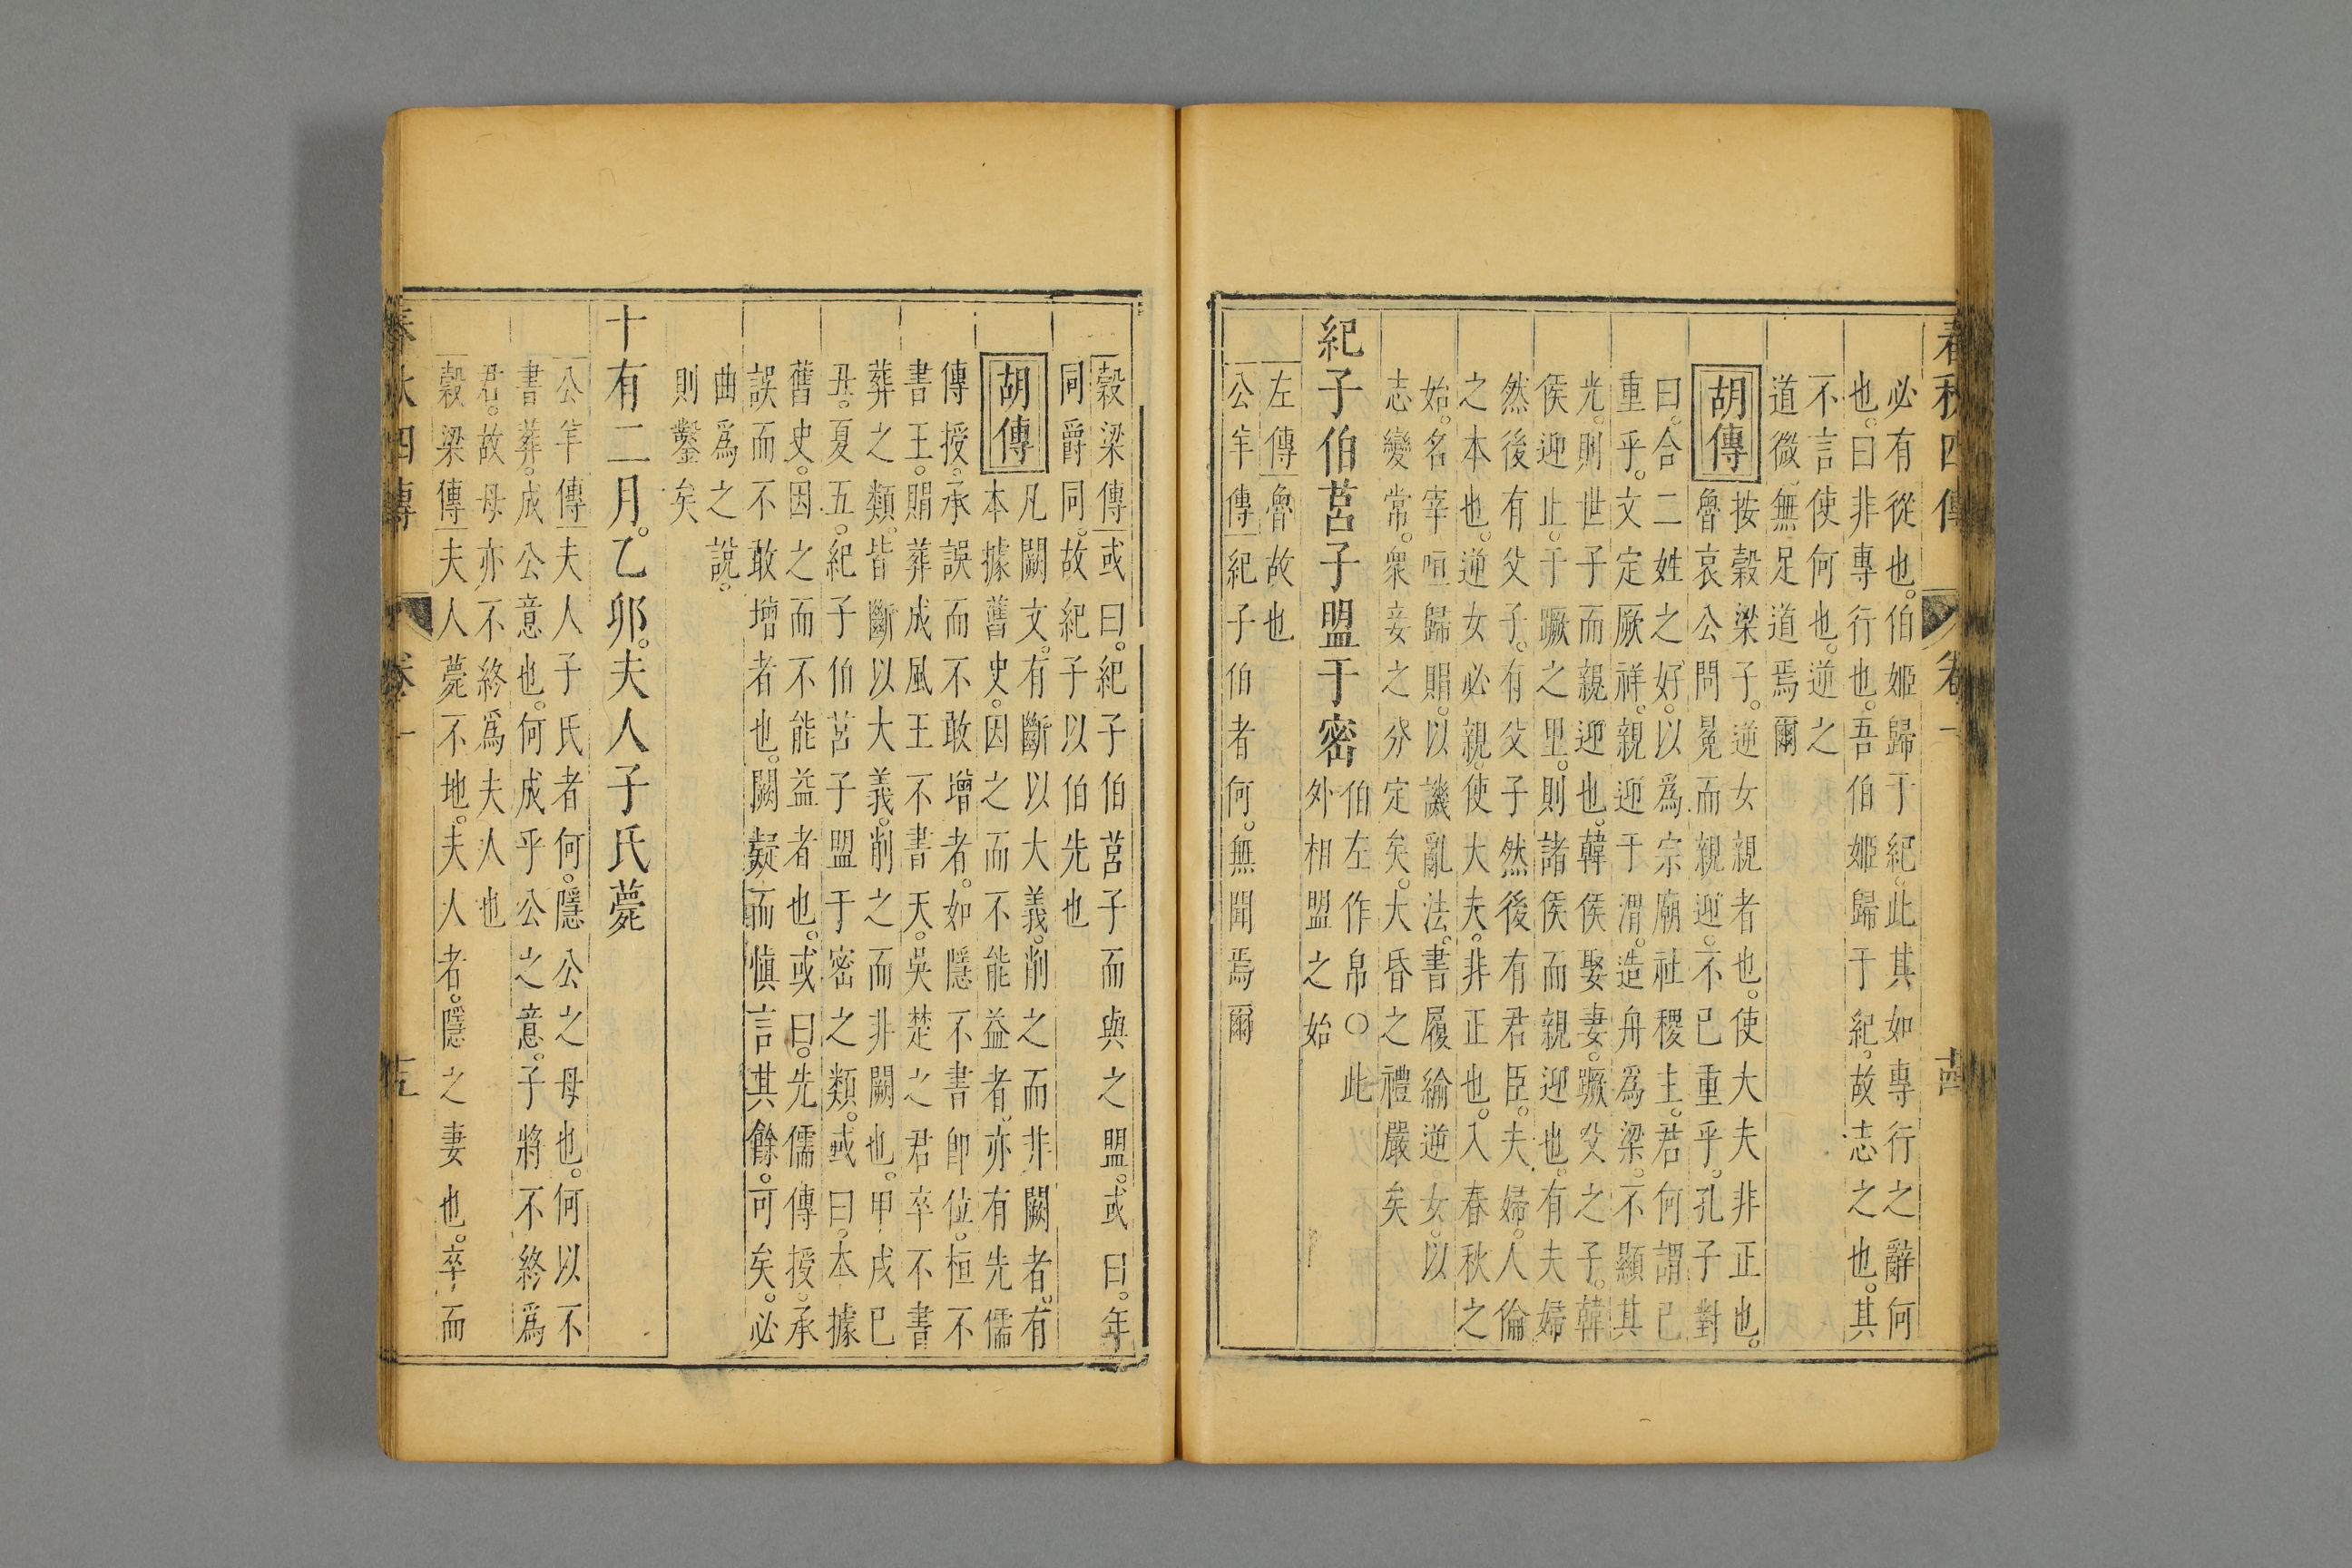 春秋四傳 卷一 十四
必有從也。伯姬歸于紀。此其如專行之辭何
也。曰非專行也。吾伯姬歸于紀。故志之也。其
不言使何也。逆之
道微。無足道焉爾
胡傳
按穀梁子。逆女親者也。使大夫非正也。
魯哀公問冕而親迎。不已重乎。孔子對
曰。合二姓之好。以爲宗廟社稷主。君何謂已
重乎。文定厥祥。親迎于渭。造舟爲梁。不顯其
光。則世子而親迎也。韓侯娶妻。蹶父之子。韓
侯迎止。于蹶之里。則諸侯而親迎也。有夫婦
然後有父子。有父子然後有君臣。夫婦。人倫
之本也。逆女必親。使大夫。非正也。入春秋之
始。名宰咺歸賵。以譏亂法。書履緰逆女。以
志變常。衆妾之分定矣。大昏之禮嚴矣
紀子伯莒子盟于密
伯左作帛〇此
外相盟之始
左傳魯故也
公羊傳紀子伯者何。無聞焉爾
穀梁傳或曰。紀子伯莒子而與之盟。或曰。年
同爵同。故紀子以伯先也
胡傳
凡闕文。有斷以大義。削之而非闕者。有
本據舊史。因之而不能益者。亦有先儒
傳授。承誤而不敢增者。如隱不書卽位。桓不
書王。賵葬成風王不書天。吳楚之君卒不書
葬之類。皆斷以大義。削之而非闕也。甲戌己
丑。夏五。紀子伯莒子盟于密之類。或曰。本據
舊史。因之而不能益者也。或曰。先儒傳授。承
誤而不敢增者也。闕疑而愼言其餘。可矣。必
曲爲之說。
則鑿矣
十有二月。乙卯。夫人子氏薨
公羊傳夫人子氏者何。隱公之母也。何以不
書葬。成公意也。何成乎公之意。子將不終爲
君。故母亦不終爲夫人也
穀梁傳夫人薨不地。夫人者。隱之妻也。卒而
春秋四傳 卷一 十五